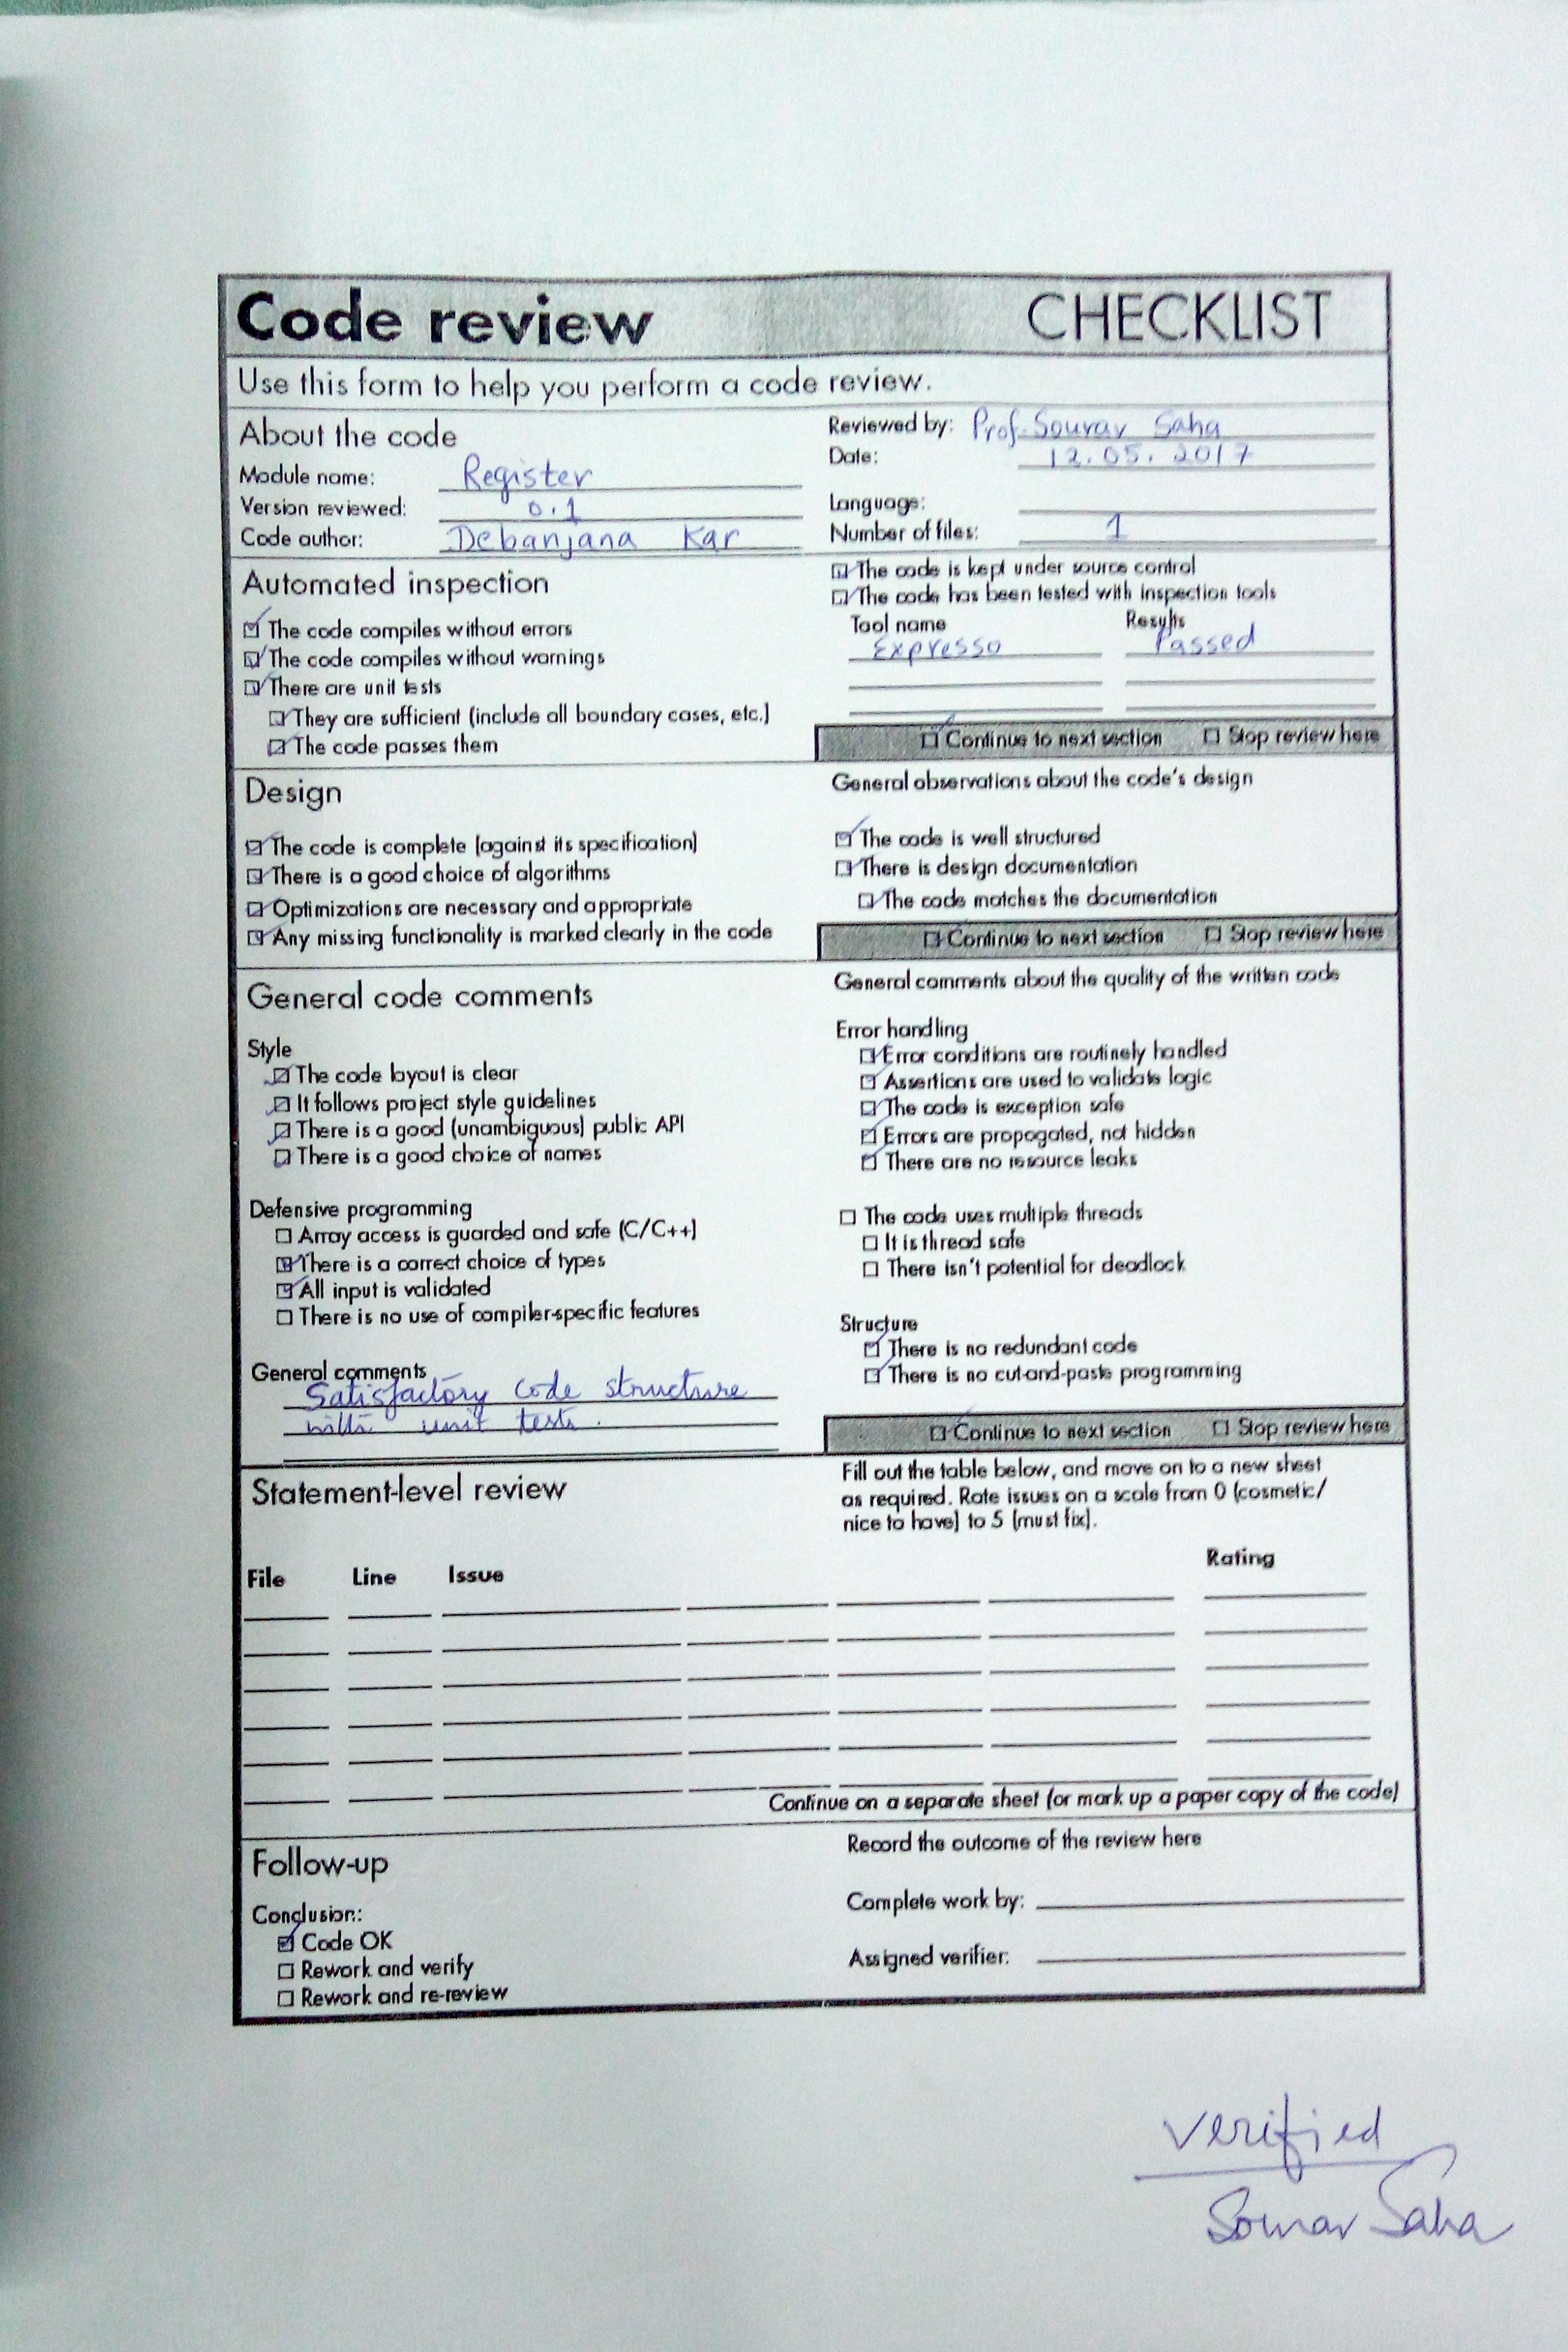 Code review CHECKLIST
Use this form to help you perform a code review.
About the code
Module name: Register
Version reviewed: 0.1
Code author: Debanjana Kar
Reviewed by: Prof. Sourav Saha
Date: 12.05.2017
Language:
Number of files: 1
Automated inspection
The code compiles without errors
The code compiles without warnings
There are unit tests
They are sufficient (include all boundary cases, etc.)
The code passes them
The code is kept under source control
The code has been tested with inspection tools
Tool name Results
Expresso Passed
Continue to next section Stop review here
Design
The code is complete (against its specification)
There is a good choice of algorithms
Optimizations are necessary and appropriate
Any missing functionality is marked clearly in the code
General observations about the code's design
The code is well structured
There is design documentation
The code matches the documentation
Continue to next section Stop review here
General code comments
Style
The code layout is clear
It follows project style guidelines
There is a good (unambiguous) public API
There is a good choice of names
Defensive programming
Array access is guarded and safe (C/C++)
There is a correct choice of types
All input is validated
There is no use of compiler-specific features
General comments
Satisfactory code structure
with unit tests.
General comments about the quality of the written code
Error handling
Error conditions are routinely handled
Assertions are used to validate logic
The code is exception safe
Errors are propogated, not hidden
There are no resource leaks
The code uses multiple threads
It is thread safe
There isn't potential for deadlock
Structure
There is no redundant code
There is no cut-and-paste programming
Continue to next section Stop review here
Statement-level review
Fill out the table below, and move on to a new sheet
as required. Rate issues on a scale from 0 (cosmetic/
nice to have) to 5 (must fix).
File Line Issue Rating
Continue on a separate sheet (or mark up a paper copy of the code)
Follow-up
Conclusion:
Code OK
Rework and verify
Rework and re-review
Record the outcome of the review here
Complete work by:
Assigned verifier:
verified
Sourav Saha